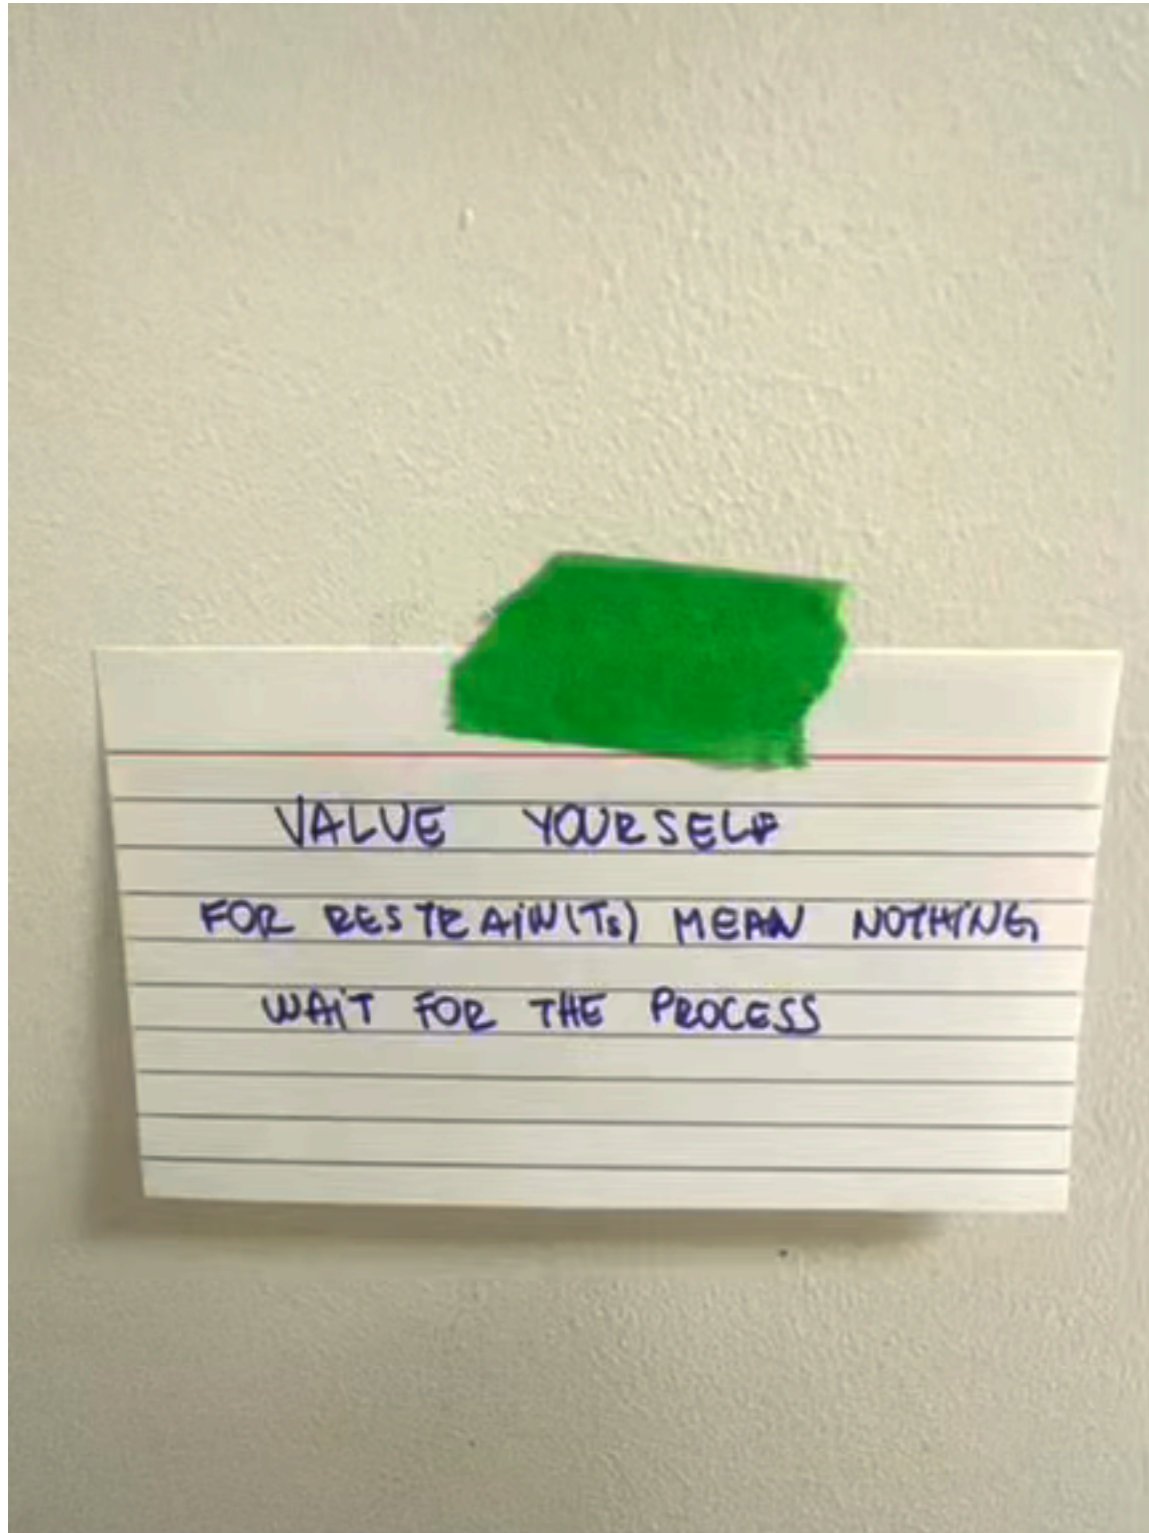 VALUE YOURSELF
FOR RESTRAIN(Ts) MEAN NOTHING
WAiT FOR THE PROCESS